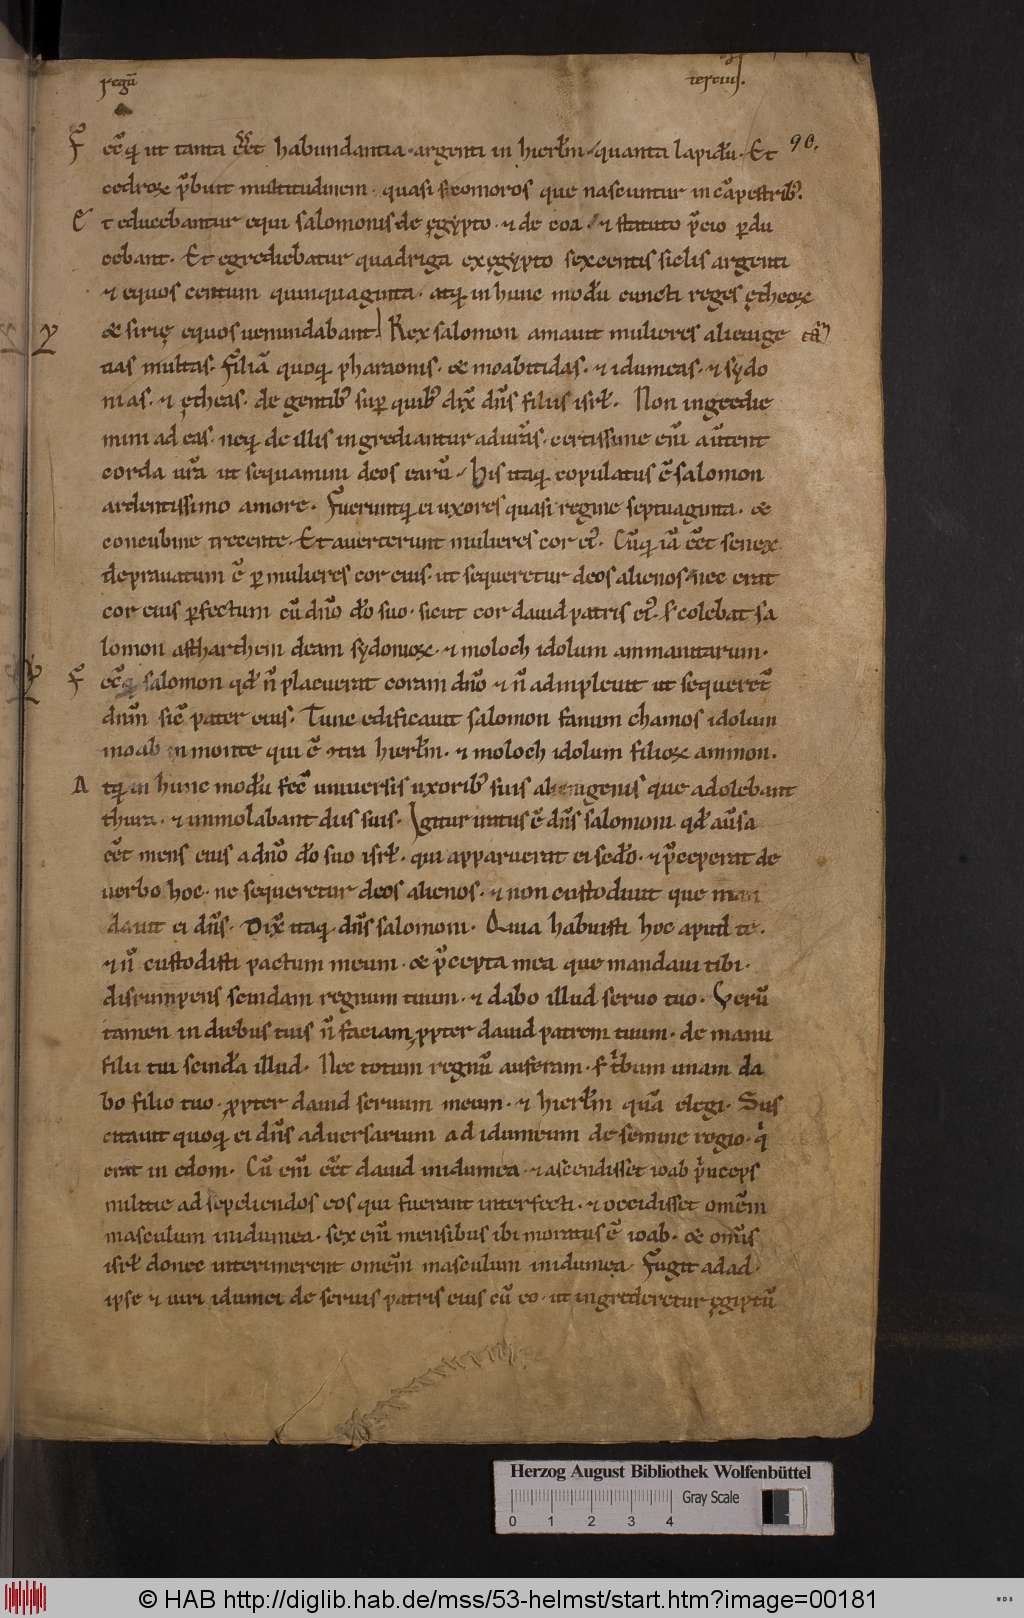 regū
terciuſ.
90.
F ec̄q; ut tanta eēt habundantia argenti in hierl̄m quanta lapidū. Et
cedroꝝ p̄buit multitudinem. quasi sicomoros que nascuntur in cāpestrib;.
E t educebantur equi salomonis de ęgypto. ⁊ de coa. ⁊ statuto p̄cio ꝑdu
cebant. Et egrediebatur quadriga ex ęgypto sexcentis siclis argenti
⁊ equos centum quinquaginta. atq; in hunc modū cuncti reges ętheoꝝ
& sirię equos uenundabant. Rex salomon amauit mulieres alienige
nas multas. filiā quoq; pharaonis. & moabitidas. ⁊ idumeas. ⁊ sydo
nias. ⁊ ętheas. de gentib; sup quib; dix̄ dn̄s filiis isrł. Non ingredie
mini ad eas. neq; de illis ingrediantur ad ur̄as. certissime eni̅ au̅tent
corda ur̄a ut sequamini deos earū. His itaq; copulatus ē salomon
ardentissimo amore. Fueruntq; ei uxores quasi regine septuaginta. &
concubine trecente. Et auerterunt mulieres cor ei;. Cūq; iā eēt senex
deprauatum ē ꝑ mulieres cor eius. ut sequeretur deos alienos. nec erat
cor eius ꝑfectum cū dn̄o dō suo. sicut cor dauid patris ei;. s; colebat sa
lomon astharthem deam sydonioꝝ. ⁊ moloch idolum ammanitarum.
F ec̄q; salomon qd̄ n̄ placuerat coram dn̄o ⁊ n̄ adinpleuit ut sequeret̄
dnm̄ sic̄ pater eius. Tunc edificauit salomon fanum chamos idolum
moab in monte qui ē ɔtra hierl̄m. ⁊ moloch idolum filioꝝ ammon.
A tq; in hunc modū fec̄ uniuersis uxorib; suis alienigenis que adolebant
thura. ⁊ immolabant diis suis. Igitur iratus ē dn̄s salomoni qd̄ au̅sa
eēt mens eius a dn̄o dō suo isrł. qui apparuerat ei sedō. ⁊ p̄ceperat de
uerbo hoc. ne sequeretur deos alienos. ⁊ non custodiuit que man
dauit ei dn̄s. Dix̄ itaq; dn̄s salomoni. Quia habuisti hoc apud te.
⁊ n̄ custodisti pactum meum. & p̄cepta mea que mandaui tibi.
disrumpens scindam regnum tuum. ⁊ dabo illud seruo tuo. Verū
tamen in diebus tuis n̄ faciam ꝓpter dauid patrem tuum. de manu
filii tui scindā illud. Nec totum regnū auferam. s; tribum unam da
bo filio tuo. ꝓpter dauid seruum meum. ⁊ hierl̄m quā elegi. Sus
citauit quoq; ei dn̄s aduersarium adad idumeum de semine regio. q'
erat in edom. Cū eni̅ eēt dauid in idumea. ⁊ ascendisset ioab p'nceps
militie ad sepeliendos eos qui fuerant interfecti. ⁊ occidisset omēm
masculum in idumea. sex eni̅ mensibus ibi moratus ē ioab. & omīs
isrł donec interimerent omēm masculum in idumea. Fugit adad.
ipse ⁊ uiri idumei de seruis patris eius cū eo. ut ingrederetur ęgiptū
Herzog August Bibliothek Wolfenbüttel
Gray Scale
0 1 2 3 4
© HAB http://diglib.hab.de/mss/53-helmst/start.htm?image=00181